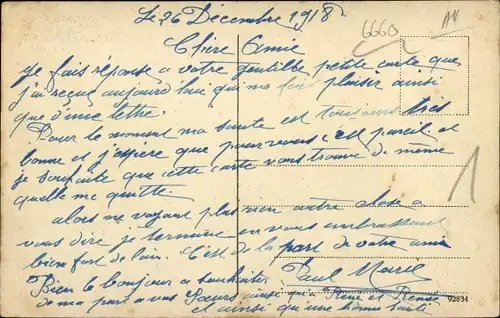 Le 26 Décembre 1918
6660
Chère Amie
Je fais réponse a votre gentille petite carte que
j'ai reçue aujourd'hui qui ma fait plaisir ainsi
que d'une lettre.
Pour le moment ma sante est toujours très
bonne et j'espère que pour vous c'est pareil et
je souhaite que cette carte vous trouve de même
quelle me quitte.
alors ne voyant plus rien autre chose a
vous dire je termine en vous embrassant
bien fort de loin. C'est de la part de votre amie
Paul Marie
Bien le bonjour a souhaiter
de ma part a vos Soeurs ainsi qu'a René et
et ainsi qu'une bonne santé
1
92834